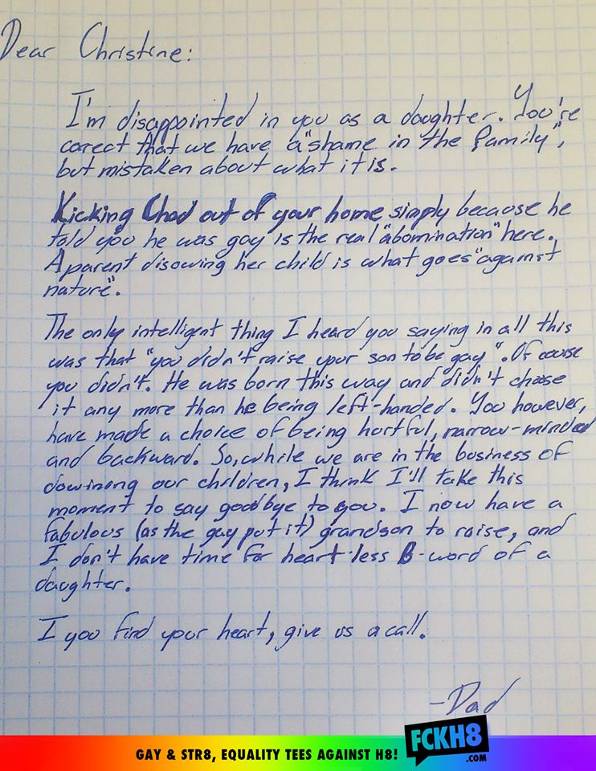 Dear Christine:
I'm disappointed in you as a daughter. You're
corect that we have a "shame in the family",
but mistaken about what it is.
Kicking Chad out of your home simply because he
told you he was gay is the real "abomination" here.
A parent disowing her child is what goes "against
nature".
The only intelligent thing I heard you saying in all this
was that "you didn't raise your son to be gay". Of couse
you didn't. He was born this way and didn't choose
it any more than he being left-handed. You however,
have made a choice of being hurtful, narrow-minded
and backward. So, while we are in the business of
disowning our children, I think I'll take this
moment to say goodbye to you. I now have a
fabulous (as the gay put it) grandson to raise, and
I don't have time for heart-less B-word of a
daughter.
I you find your heart, give us a call.
-Dad
GAY & STR8, EQUALITY TEES AGAINST H8!
FCKH8
.COM